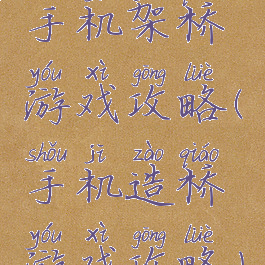 手机架桥
yóu xì gōng lüè
游戏攻略(
shǒu jī zào qiáo
手机造桥
yóu xì gōng lüè
游戏攻略)